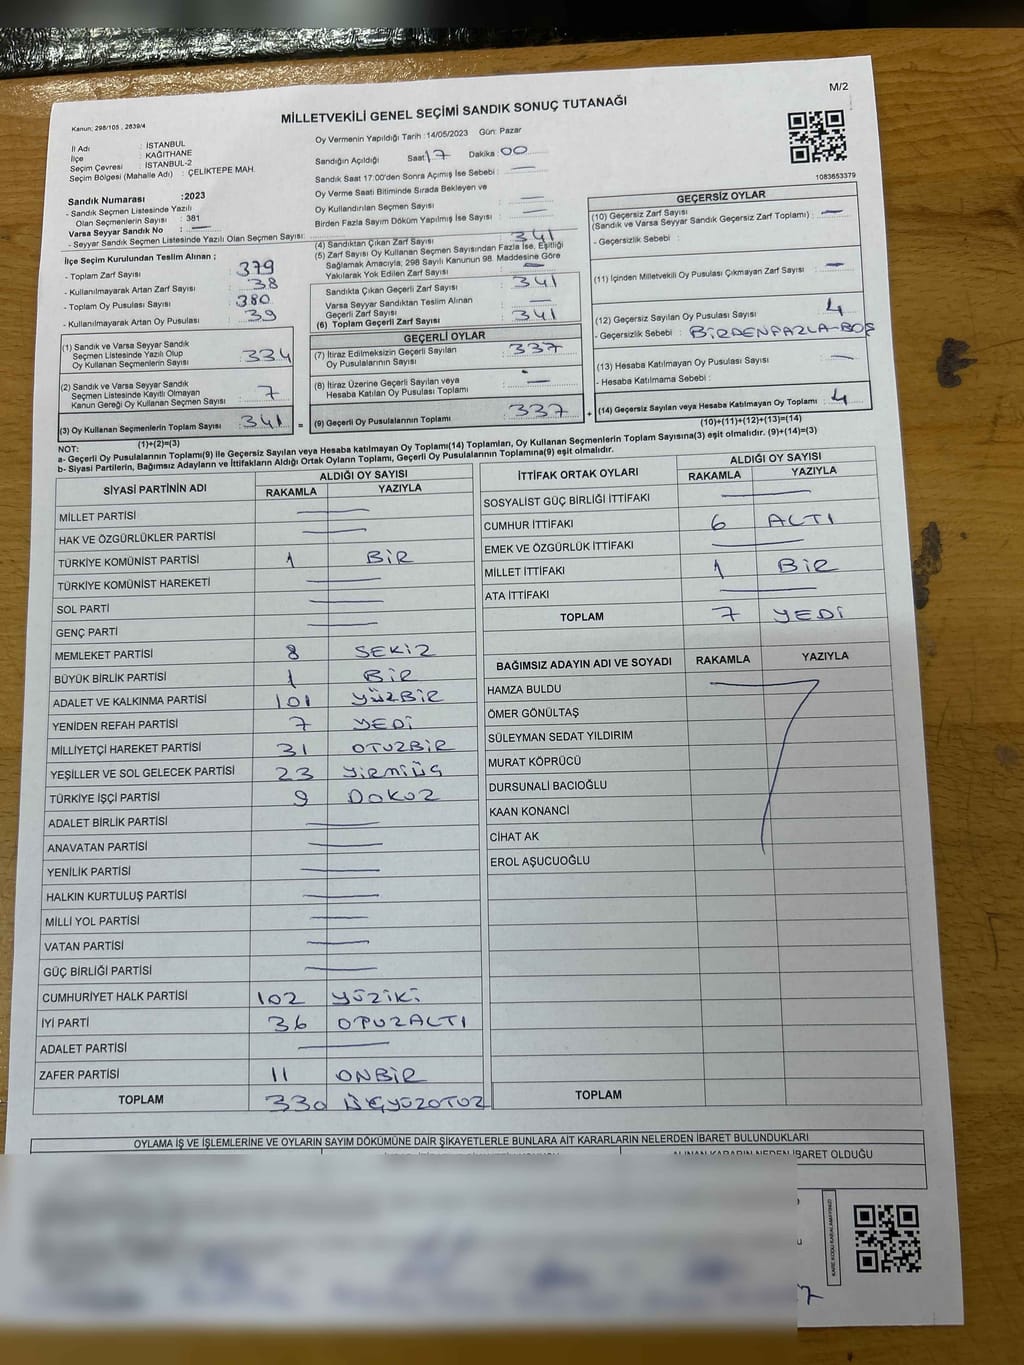 M/2
MİLLETVEKİLİ GENEL SEÇİMİ SANDIK SONUÇ TUTANAĞI
Kanun: 298/105 , 2839/4
İl Adı : İSTANBUL
İlçe : KAĞITHANE
Seçim Çevresi : İSTANBUL-2
Seçim Bölgesi (Mahalle Adı) : ÇELİKTEPE MAH.
Oy Vermenin Yapıldığı Tarih : 14/05/2023 Gün: Pazar
Sandığın Açıldığı Saat 17 Dakika : 00
Sandık Saat 17:00'den Sonra Açımış İse Sebebi : —
Oy Verme Saati Bitiminde Sırada Bekleyen ve
Oy Kullandırılan Seçmen Sayısı : —
Birden Fazla Sayım Döküm Yapılmış İse Sayısı : —
1083653379
Sandık Numarası : 2023
- Sandık Seçmen Listesinde Yazılı
Olan Seçmenlerin Sayısı : 381
Varsa Seyyar Sandık No : —
- Seyyar Sandık Seçmen Listesinde Yazılı Olan Seçmen Sayısı:
İlçe Seçim Kurulundan Teslim Alınan ;
- Toplam Zarf Sayısı : 379
- Kullanılmayarak Artan Zarf Sayısı : 38
- Toplam Oy Pusulası Sayısı : 380
- Kullanılmayarak Artan Oy Pusulası : 39
(1) Sandık ve Varsa Seyyar Sandık
Seçmen Listesinde Yazılı Olup
Oy Kullanan Seçmenlerin Sayısı : 334
(2) Sandık ve Varsa Seyyar Sandık
Seçmen Listesinde Kayıtlı Olmayan
Kanun Gereği Oy Kullanan Seçmen Sayısı : 7
(3) Oy Kullanan Seçmenlerin Toplam Sayısı : 341
(1)+(2)=(3)
(4) Sandıktan Çıkan Zarf Sayısı : 341
(5) Zarf Sayısı Oy Kullanan Seçmen Sayısından Fazla İse, Eşitliği
Sağlamak Amacıyla, 298 Sayılı Kanunun 98. Maddesine Göre
Yakılarak Yok Edilen Zarf Sayısı : —
Sandıkta Çıkan Geçerli Zarf Sayısı : 341
Varsa Seyyar Sandıktan Teslim Alınan
Geçerli Zarf Sayısı : —
(6) Toplam Geçerli Zarf Sayısı : 341
GEÇERLİ OYLAR
(7) İtiraz Edilmeksizin Geçerli Sayılan
Oy Pusulalarının Sayısı : 337
(8) İtiraz Üzerine Geçerli Sayılan veya
Hesaba Katılan Oy Pusulası Toplamı : —
= (9) Geçerli Oy Pusulalarının Toplamı : 337 +
GEÇERSİZ OYLAR
(10) Geçersiz Zarf Sayısı : —
(Sandık ve Varsa Seyyar Sandık Geçersiz Zarf Toplamı)
- Geçersizlik Sebebi :
(11) İçinden Milletvekili Oy Pusulası Çıkmayan Zarf Sayısı : —
(12) Geçersiz Sayılan Oy Pusulası Sayısı : 4
- Geçersizlik Sebebi : BİRDENFAZLA-BOŞ
(13) Hesaba Katılmayan Oy Pusulası Sayısı : —
- Hesaba Katılmama Sebebi :
(14) Geçersiz Sayılan veya Hesaba Katılmayan Oy Toplamı : 4
(10)+(11)+(12)+(13)=(14)
NOT:
a- Geçerli Oy Pusulalarının Toplamı(9) ile Geçersiz Sayılan veya Hesaba katılmayan Oy Toplamı(14) Toplamları, Oy Kullanan Seçmenlerin Toplam Sayısına(3) eşit olmalıdır. (9)+(14)=(3)
b- Siyasi Partilerin, Bağımsız Adayların ve İttifakların Aldığı Ortak Oyların Toplamı, Geçerli Oy Pusulalarının Toplamına(9) eşit olmalıdır.
SİYASİ PARTİNİN ADI ALDIĞI OY SAYISI
RAKAMLA YAZIYLA
MİLLET PARTİSİ —
HAK VE ÖZGÜRLÜKLER PARTİSİ —
TÜRKİYE KOMÜNİST PARTİSİ 1 BİR
TÜRKİYE KOMÜNİST HAREKETİ —
SOL PARTİ —
GENÇ PARTİ —
MEMLEKET PARTİSİ 8 SEKİZ
BÜYÜK BİRLİK PARTİSİ 1 BİR
ADALET VE KALKINMA PARTİSİ 101 YÜZBİR
YENİDEN REFAH PARTİSİ 7 YEDİ
MİLLİYETÇİ HAREKET PARTİSİ 31 OTUZBİR
YEŞİLLER VE SOL GELECEK PARTİSİ 23 YİRMİÜÇ
TÜRKİYE İŞÇİ PARTİSİ 9 DOKUZ
ADALET BİRLİK PARTİSİ —
ANAVATAN PARTİSİ —
YENİLİK PARTİSİ —
HALKIN KURTULUŞ PARTİSİ —
MİLLİ YOL PARTİSİ —
VATAN PARTİSİ —
GÜÇ BİRLİĞİ PARTİSİ —
CUMHURİYET HALK PARTİSİ 102 YÜZİKİ
İYİ PARTİ 36 OTUZALTI
ADALET PARTİSİ —
ZAFER PARTİSİ 11 ONBİR
TOPLAM 330 ÜÇYÜZOTUZ
İTTİFAK ORTAK OYLARI ALDIĞI OY SAYISI
RAKAMLA YAZIYLA
SOSYALİST GÜÇ BİRLİĞİ İTTİFAKI —
CUMHUR İTTİFAKI 6 ALTI
EMEK VE ÖZGÜRLÜK İTTİFAKI —
MİLLET İTTİFAKI 1 BİR
ATA İTTİFAKI —
TOPLAM 7 YEDİ
BAĞIMSIZ ADAYIN ADI VE SOYADI RAKAMLA YAZIYLA
HAMZA BULDU
ÖMER GÖNÜLTAŞ
SÜLEYMAN SEDAT YILDIRIM
MURAT KÖPRÜCÜ
DURSUNALİ BACIOĞLU
KAAN KONANCİ
CİHAT AK
EROL AŞUCUOĞLU
TOPLAM
OYLAMA İŞ VE İŞLEMLERİNE VE OYLARIN SAYIM DÖKÜMÜNE DAİR ŞİKAYETLERLE BUNLARA AİT KARARLARIN NELERDEN İBARET BULUNDUKLARI
ALINAN KARARIN NEDEN İBARET OLDUĞU
KARE KODU KARALAMAYINIZ!